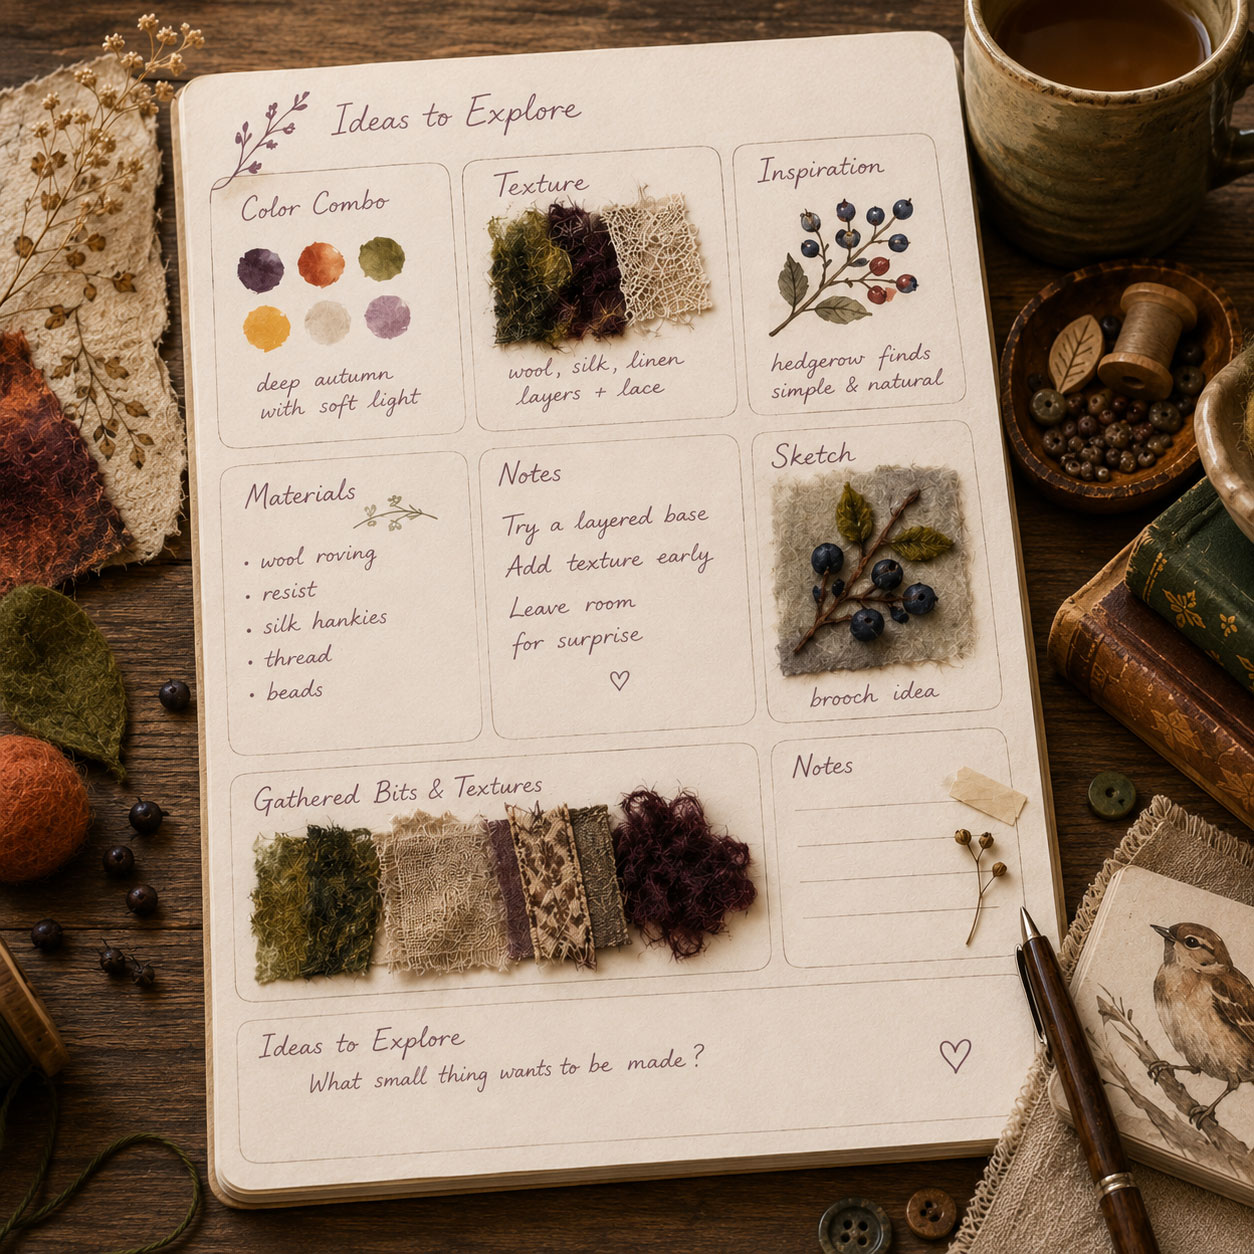 Ideas to Explore
Color Combo
deep autumn
with soft light
Texture
wool, silk, linen
layers + lace
Inspiration
hedgerow finds
simple & natural
Materials
• wool roving
• resist
• silk hankies
• thread
• beads
Notes
Try a layered base
Add texture early
Leave room
for surprise
Sketch
brooch idea
Gathered Bits & Textures
Notes
Ideas to Explore
What small thing wants to be made?